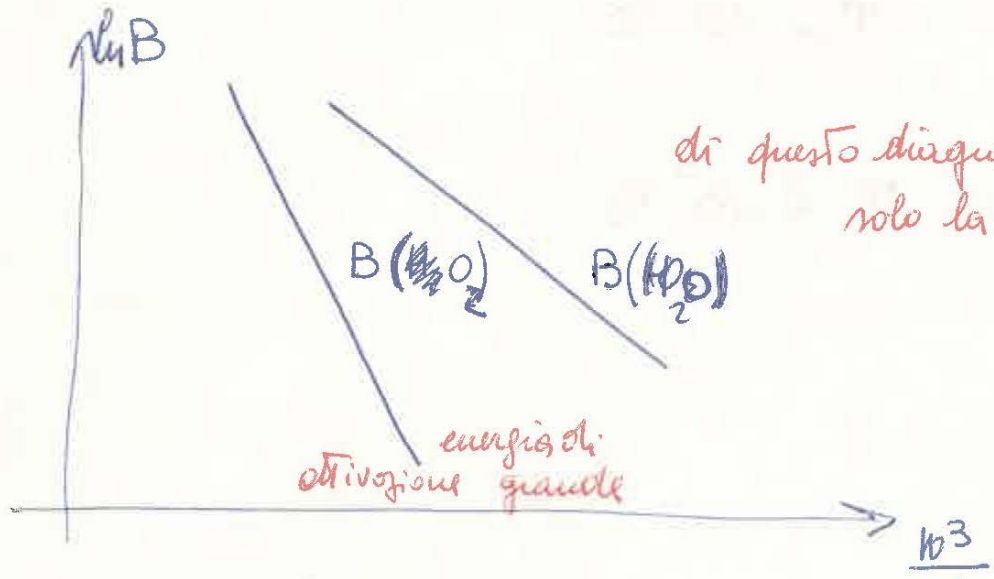 ln B
di questo diagu
solo la
B(O₂)
B(H₂O)
energia di
attivazione grande
10³